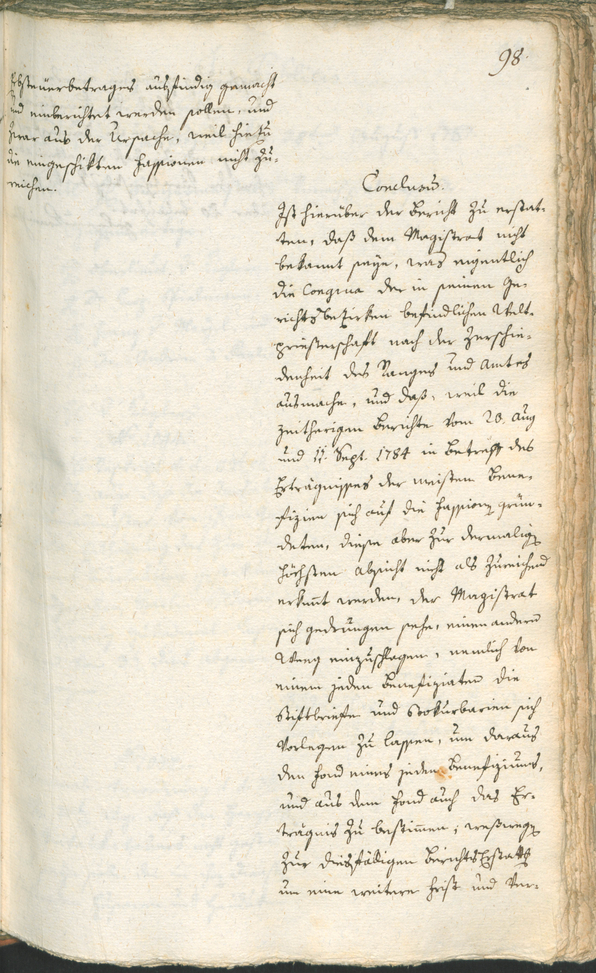 98.
Erbsteuerbetrages ausfündig gemacht
und einberichtet werden sollen, und
zwar aus der Ursache, weil hiezu
die eingeschikten Fassionen nicht zu-
reichen.
Conclusum.
Ist hierüber der Bericht zu erstat-
ten, daß dem Magistrat nicht
bekannt seye, was eigentlich
die Congrua der in seinen Ge-
richtsbezirken befindlichen Welt-
priesterschaft nach der Verschie-
denheit des Ranges und Amtes
ausmache, und daß, weil die
zeitherigen Berichte vom 28. Aug
und 11. Sept. 1784 in Betreff des
Erträgnisses der meisten Bene-
fizien sich auf die Fassionen grün-
deten, diese aber zur dermaligen
höchsten Absicht nicht als zureichend
erkannt werden, der Magistrat
sich gedrungen sehe, einen anderen
Weeg einzuschlagen, nemlich von
einem jeden Benefiziaten die
Stiftbriefe und Stokurbarien sich
vorlegen zu lassen, um daraus
den Fond eines jeden Benefiziums,
und aus dem Fond auch das Er-
trägnis zu bestimmen; weßwegen
zur diesfälligen Berichtserstattung
um eine weitere Frist und Ver-